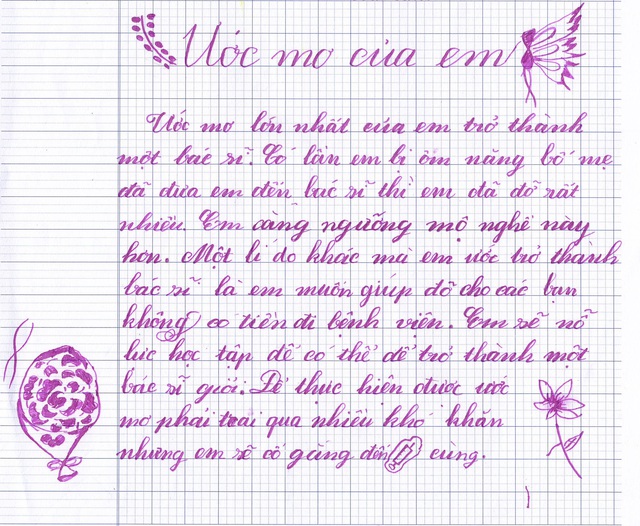 Ước mơ của em
Ước mơ lớn nhất của em trở thành
một bác sĩ. Có lần em bị ốm nặng bố mẹ
đã đưa em đến bác sĩ thì em đã đỡ rất
nhiều. Em càng ngưỡng mộ nghề này
hơn. Một lí do khác mà em ước trở thành
bác sĩ là em muốn giúp đỡ cho các bạn
không có tiền đi bệnh viện. Em sẽ nỗ
lực học tập để có thể để trở thành một
bác sĩ giỏi. Để thực hiện được ước
mơ phải trải qua nhiều khó khăn
nhưng em sẽ cố gắng đến cùng.